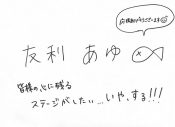 友利 あゆ
皆様の心に残る
ステージがしたい…いや、する!!!